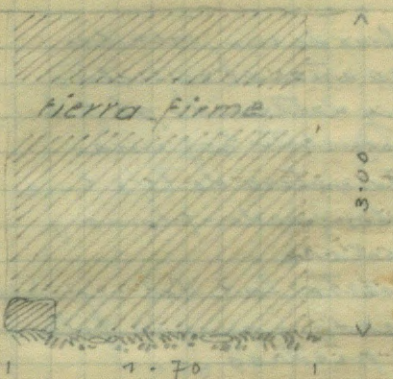 tierra firme
3.00
1.70